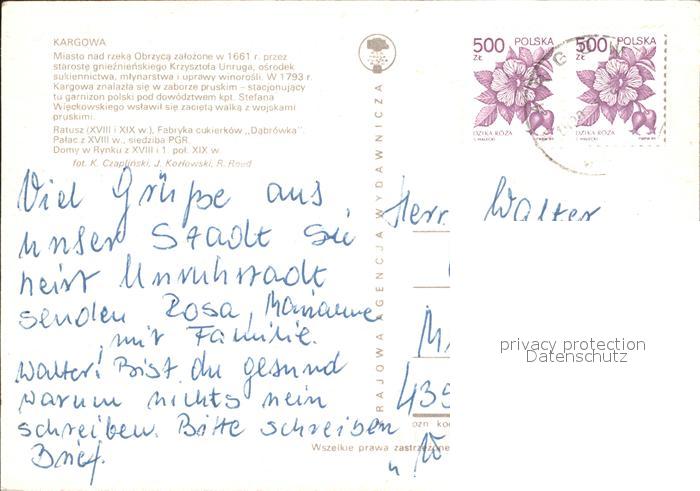 KARGOWA
Miasto nad rzeką Obrzycą założone w 1661 r. przez
starostę gnieźnieńskiego Krzysztofa Unruga, ośrodek
sukiennictwa, młynarstwa i uprawy winorośli. W 1793 r.
Kargowa znalazła się w zaborze pruskim – stacjonujący
tu garnizon polski pod dowództwem kpt. Stefana
Więckowskiego wsławił się zaciętą walką z wojskami
pruskimi.
Ratusz (XVIII i XIX w.), Fabryka cukierków „Dąbrówka".
Pałac z XVIII w., siedziba PGR.
Domy w Rynku z XVIII i 1. poł. XIX w.
fot. K. Czapliński, J. Kozłowski, R. Reed
Viel Grüße aus
unser Stadt sie
heist Unruhstadt
senden Rosa, Marianne
mit Familie.
Walter! Bist du gesund
warum nichts nein
schreiben. Bitte schreiben
Brief.
KRAJOWA AGENCJA WYDAWNICZA
500 POLSKA
ZŁ
DZIKA RÓŻA
500 POLSKA
ZŁ
DZIKA RÓŻA
Herr Walter
M
435
privacy protection
Datenschutz
Wszelkie prawa zastrzeżone